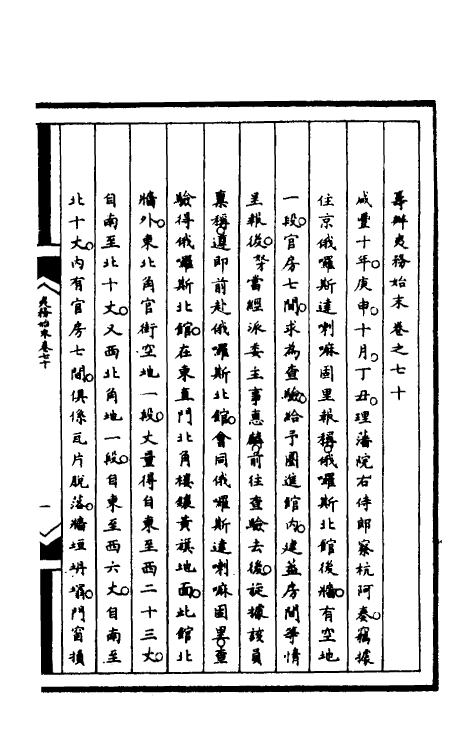 籌辦夷務始末卷之七十
咸豐十年。庚申。十月。丁丑。理藩院右侍郎察杭阿奏。竊據
住京俄囉斯達喇嘛固里報稱。俄囉斯北館後牆。有空地
一段。官房七間。求為查驗。給予圈進館內。建蓋房間等情
呈報。後。奴才當經派委主事惠麟。前往查驗去後。旋據該員
稟稱。遵即前赴俄囉斯北館。會同俄囉斯達喇嘛固里。查
驗得俄囉斯北館。在東直門北角樓鑲黃旗地面。此館北
牆外。東北角官街空地一段。丈量得自東至西二十三丈。
自南至北十丈。又西北角地一段。自東至西六丈。自南至
北十丈。內有官房七間。俱係瓦片脫落。牆垣坍塌。門窗損
夷務始末卷七十
一